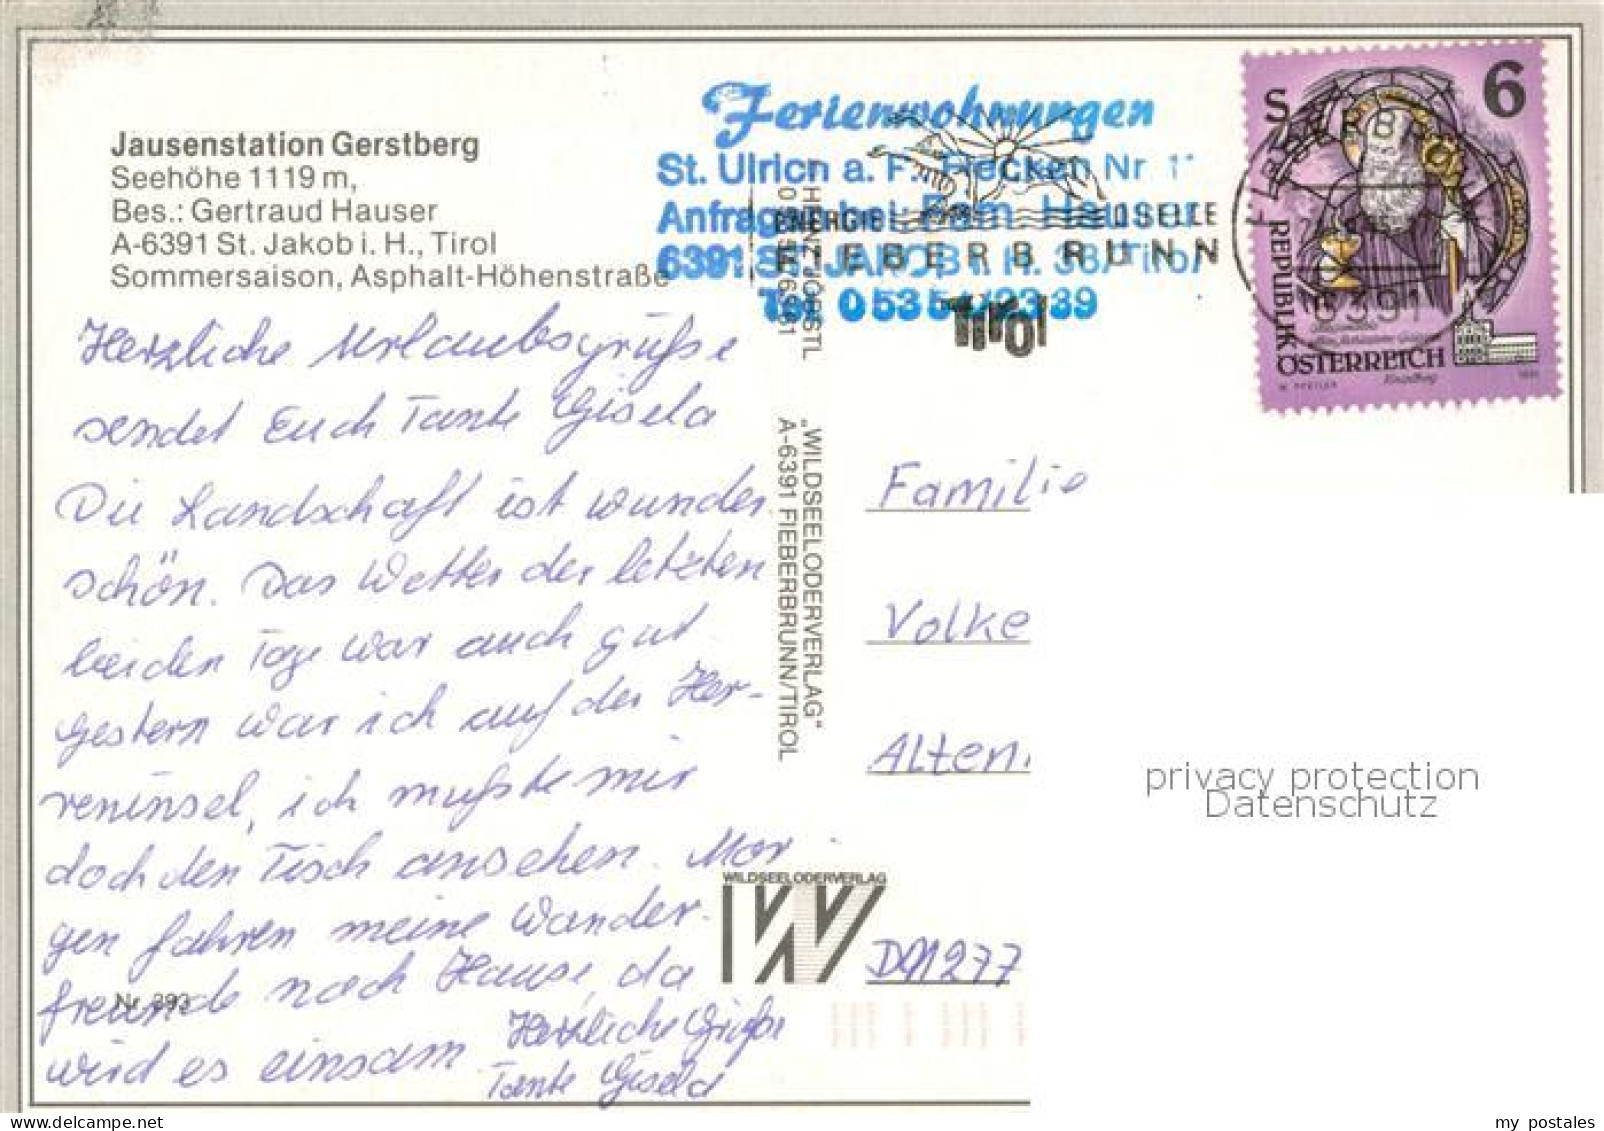 Jausenstation Gerstberg
Seehöhe 1119 m,
Bes.: Gertraud Hauser
A-6391 St. Jakob i. H., Tirol
Sommersaison, Asphalt-Höhenstraße
Herzliche Urlaubsgrüße
sendet Euch Tante Gisela
Die Landschaft ist wunder
schön. Das Wetter der letzten
beiden Tage war auch gut
Gestern war ich auf der Her-
reninsel, ich mußte mir
doch den Tisch ansehen. Mor
gen fahren meine Wander-
freunde nach Hause, da
wird es einsam
Herzliche Grüße
Tante Gisela
Nr. 393
Ferienwohnungen
St. Ulrich a. P. Flecken Nr 11
Anfragen bei: Fam. Hauser
6391 St. JAKOB i. H. 38/Tirol
Tel. 0 53 54/
ENERGIE OSEILE
FIEBERBRUNN
Tirol
"WILDSEELODERVERLAG"
A-6391 FIEBERBRUNN/TIROL
WILDSEELODERVERLAG
W
S 6
REPUBLIK
ÖSTERREICH
6391
Familie
Volke
Alten
277
privacy protection
Datenschutz
my postales